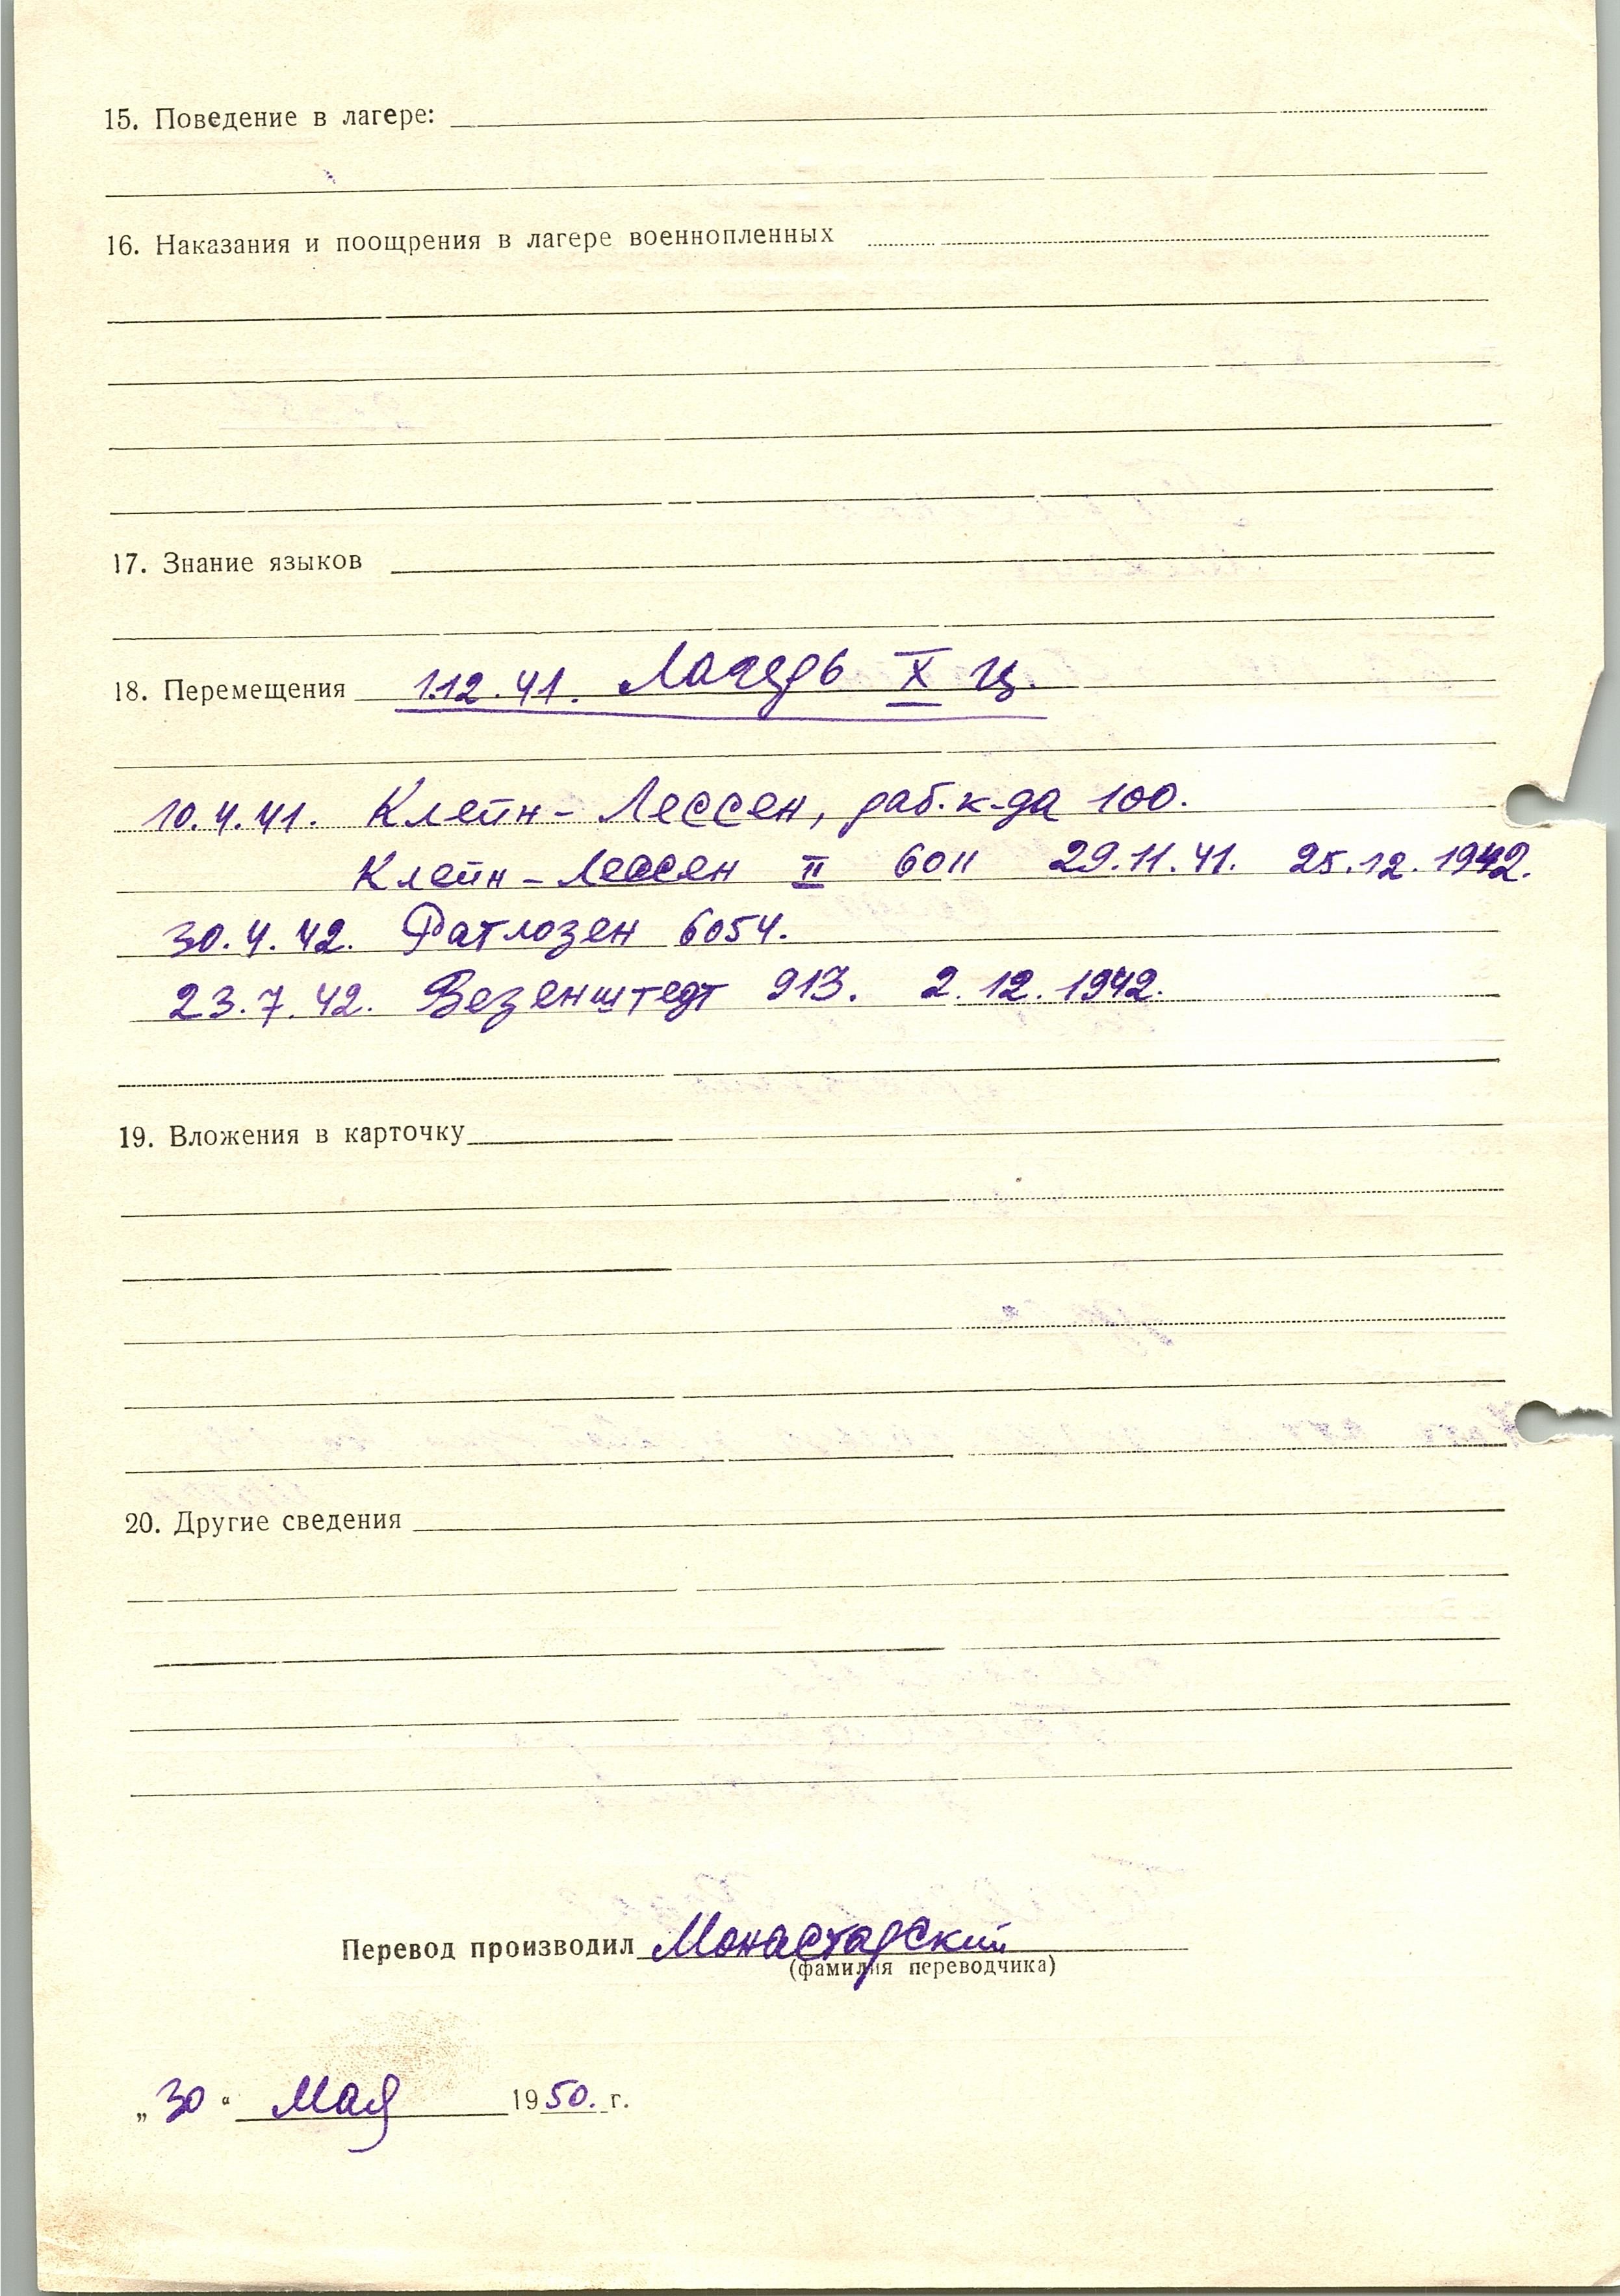 15. Поведение в лагере:
16. Наказания и поощрения в лагере военнопленных
17. Знание языков
18. Перемещения 1.12.41. Лагерь X ц.
10.4.41. Клейн-Лессен, раб.к-да 100.
Клейн-Лессен II 6011 29.11.41. 25.12.1942.
30.4.42. Ратлозен 6054.
23.7.42. Везенштедт 913. 2.12.1942.
19. Вложения в карточку
20. Другие сведения
Перевод производил Монастарский
(фамилия переводчика)
„30“ Мая 1950. г.